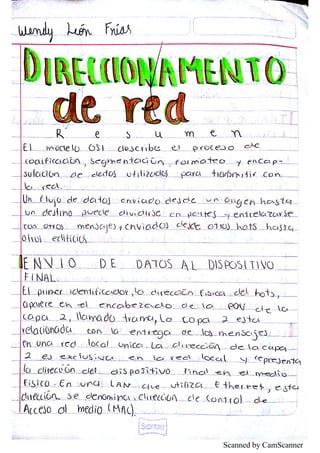 Wendy León Frías
DIRECCIONAMENTO
de red
Resumen
El modelo OSI describe el proceso de
codificación, segmentación, formateo y encap-
sulación de datos utilizados para trasmitir con
la red.
Un flujo de datos enviado desde un origen hasta
un destino puede dividirse en partes y entrelazarse
con otros mensajes, enviados desde otros hots hasta
otros edificios
ENVIO DE DATOS AL DISPOSITIVO
FINAL.
El primer identificador, la dirección fisica del hots,
aparece en el encabezado de la PDU de la
capa 2, llamado trama, La capa 2 esta
relacionada con la entrega de los mensajes
en una red local unica. La dirección de la capa
2 es exclusiva en la red local y representa
la dirección del dispositivo final en el medio
Fisico. En una LAN que utiliza Ethernet, esta
dirección se denomina, dirección de Control de
Acceso al medio (MAC).
Scribe
Scanned by CamScanner